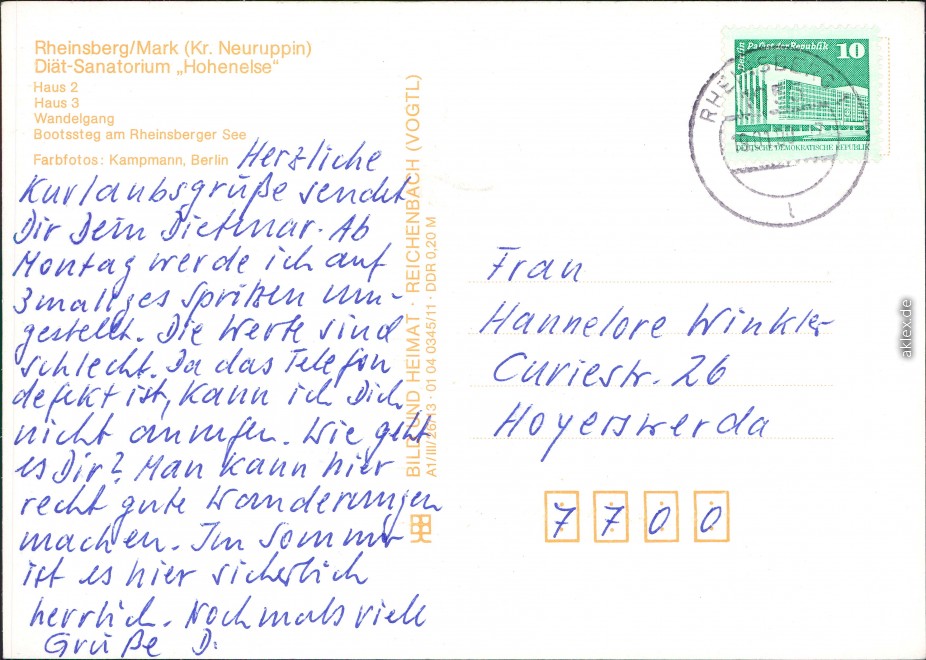 Rheinsberg/Mark (Kr. Neuruppin)
Diät-Sanatorium „Hohenelse“
Haus 2
Haus 3
Wandelgang
Bootssteg am Rheinsberger See
Farbfotos: Kampmann, Berlin
Herzliche
Kurlaubsgrüße sendet
Dir Dein Dietmar. Ab
Montag werde ich auf
3maliges Spritzen um-
gestellt. Die Werte sind
schlecht. Da das Telefon
defekt ist, kann ich Dich
nicht anrufen. Wie geht
es Dir? Man kann hier
recht gute Wanderungen
machen. Im Sommer
ist es hier sicherlich
herrlich. Nochmals viele
Grüße D.
BILD UND HEIMAT · REICHENBACH (VOGTL)
A1/III/26/13 · 01 04 0345/11 · DDR 0,20 M
Berlin Palast der Republik 10
DEUTSCHE DEMOKRATISCHE REPUBLIK
RHEINSBERG
1
Frau
Hannelore Winkler
Curiestr. 26
Hoyerswerda
7700
aklex.de